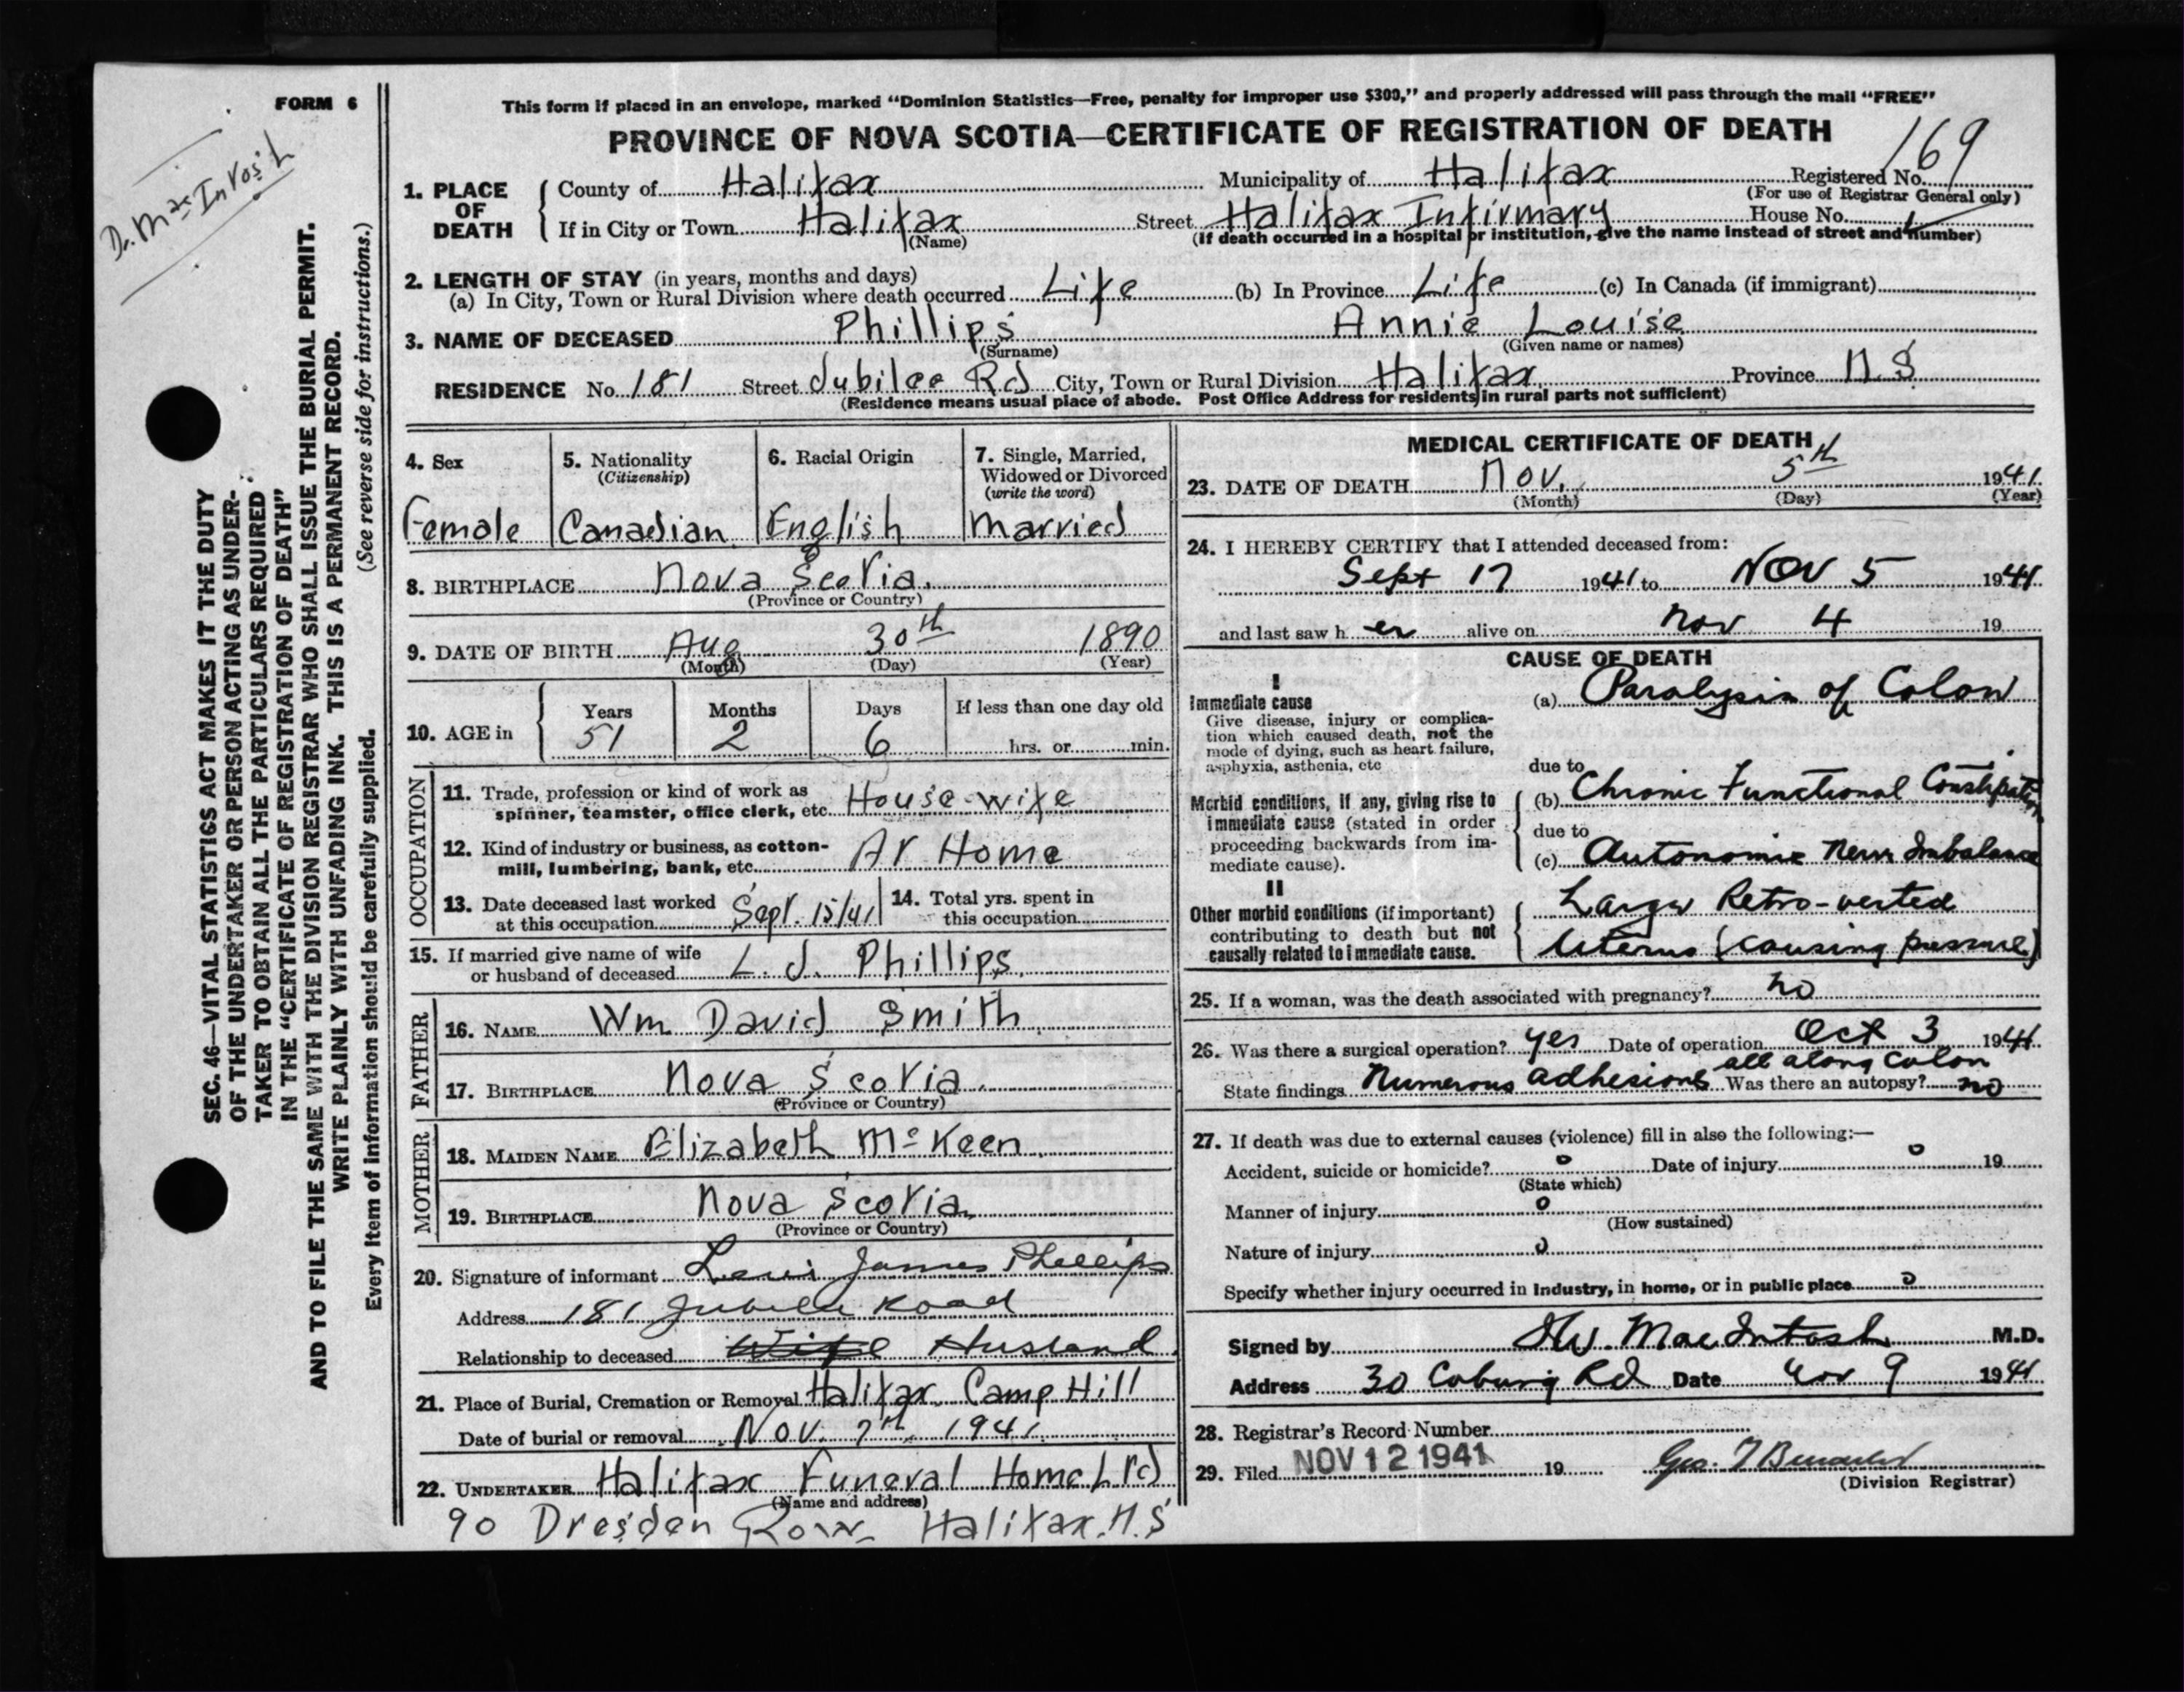 FORM 6
Dr. MacIntosh
SEC. 46—VITAL STATISTICS ACT MAKES IT THE DUTY
OF THE UNDERTAKER OR PERSON ACTING AS UNDER-
TAKER TO OBTAIN ALL THE PARTICULARS REQUIRED
IN THE "CERTIFICATE OF REGISTRATION OF DEATH"
AND TO FILE THE SAME WITH THE DIVISION REGISTRAR WHO SHALL ISSUE THE BURIAL PERMIT.
WRITE PLAINLY WITH UNFADING INK. THIS IS A PERMANENT RECORD.
Every item of information should be carefully supplied. (See reverse side for instructions.)
This form if placed in an envelope, marked "Dominion Statistics—Free, penalty for improper use $300," and properly addressed will pass through the mail "FREE"
PROVINCE OF NOVA SCOTIA—CERTIFICATE OF REGISTRATION OF DEATH
169
1. PLACE OF DEATH County of Halifax Municipality of Halifax Registered No.
(For use of Registrar General only)
If in City or Town Halifax Street Halifax Infirmary House No.
(Name) (If death occurred in a hospital or institution, give the name instead of street and number)
2. LENGTH OF STAY (in years, months and days)
(a) In City, Town or Rural Division where death occurred Life (b) In Province Life (c) In Canada (if immigrant)
3. NAME OF DECEASED Phillips Annie Louise
(Surname) (Given name or names)
RESIDENCE No. 181 Street Jubilee Rd City, Town or Rural Division Halifax Province N.S
(Residence means usual place of abode. Post Office Address for residents in rural parts not sufficient)
4. Sex 5. Nationality 6. Racial Origin 7. Single, Married,
(Citizenship) Widowed or Divorced
(write the word)
Female Canadian English Married
8. BIRTHPLACE Nova Scotia
(Province or Country)
9. DATE OF BIRTH Aug 30th 1890
(Month) (Day) (Year)
10. AGE in Years Months Days If less than one day old
51 2 6 hrs. or min.
OCCUPATION
11. Trade, profession or kind of work as
spinner, teamster, office clerk, etc. House-wife
12. Kind of industry or business, as cotton-
mill, lumbering, bank, etc. At Home
13. Date deceased last worked
at this occupation Sept. 15/41
14. Total yrs. spent in
this occupation
15. If married give name of wife
or husband of deceased L. J. Phillips
FATHER
16. NAME Wm David Smith
17. BIRTHPLACE Nova Scotia
(Province or Country)
MOTHER
18. MAIDEN NAME Elizabeth McKeen
19. BIRTHPLACE Nova Scotia
(Province or Country)
20. Signature of informant James Phillips
Address 181 Jubilee Road
Relationship to deceased Wife Husband
21. Place of Burial, Cremation or Removal Halifax Camp Hill
Date of burial or removal Nov. 7th 1941
22. UNDERTAKER Halifax Funeral Home Ltd
(Name and address)
90 Dresden Row Halifax. N.S
MEDICAL CERTIFICATE OF DEATH
23. DATE OF DEATH Nov. 5th 1941
(Month) (Day) (Year)
24. I HEREBY CERTIFY that I attended deceased from:
Sept 17 1941 to Nov 5 1941
and last saw her alive on Nov 4 19
CAUSE OF DEATH
I
Immediate cause
Give disease, injury or complica-
tion which caused death, not the
mode of dying, such as heart failure,
asphyxia, asthenia, etc
(a) Paralysis of Colon
due to
Morbid conditions, if any, giving rise to
immediate cause (stated in order
proceeding backwards from im-
mediate cause).
(b) Chronic Functional Constipation
due to
(c) Autonomic Nerve Imbalance
II
Other morbid conditions (if important)
contributing to death but not
causally related to immediate cause.
Large Retro-verted
Uterus (causing pressure)
25. If a woman, was the death associated with pregnancy? no
26. Was there a surgical operation? yes Date of operation Oct 3 1941
all along Colon
State findings Numerous adhesions Was there an autopsy? no
27. If death was due to external causes (violence) fill in also the following:—
Accident, suicide or homicide? o Date of injury o 19
(State which)
Manner of injury o
(How sustained)
Nature of injury o
Specify whether injury occurred in Industry, in home, or in public place o
Signed by MacIntosh M.D.
Address 30 Coburg Rd Date Nov 9 1941
28. Registrar's Record Number
29. Filed NOV 12 1941 19 Geo.
(Division Registrar)